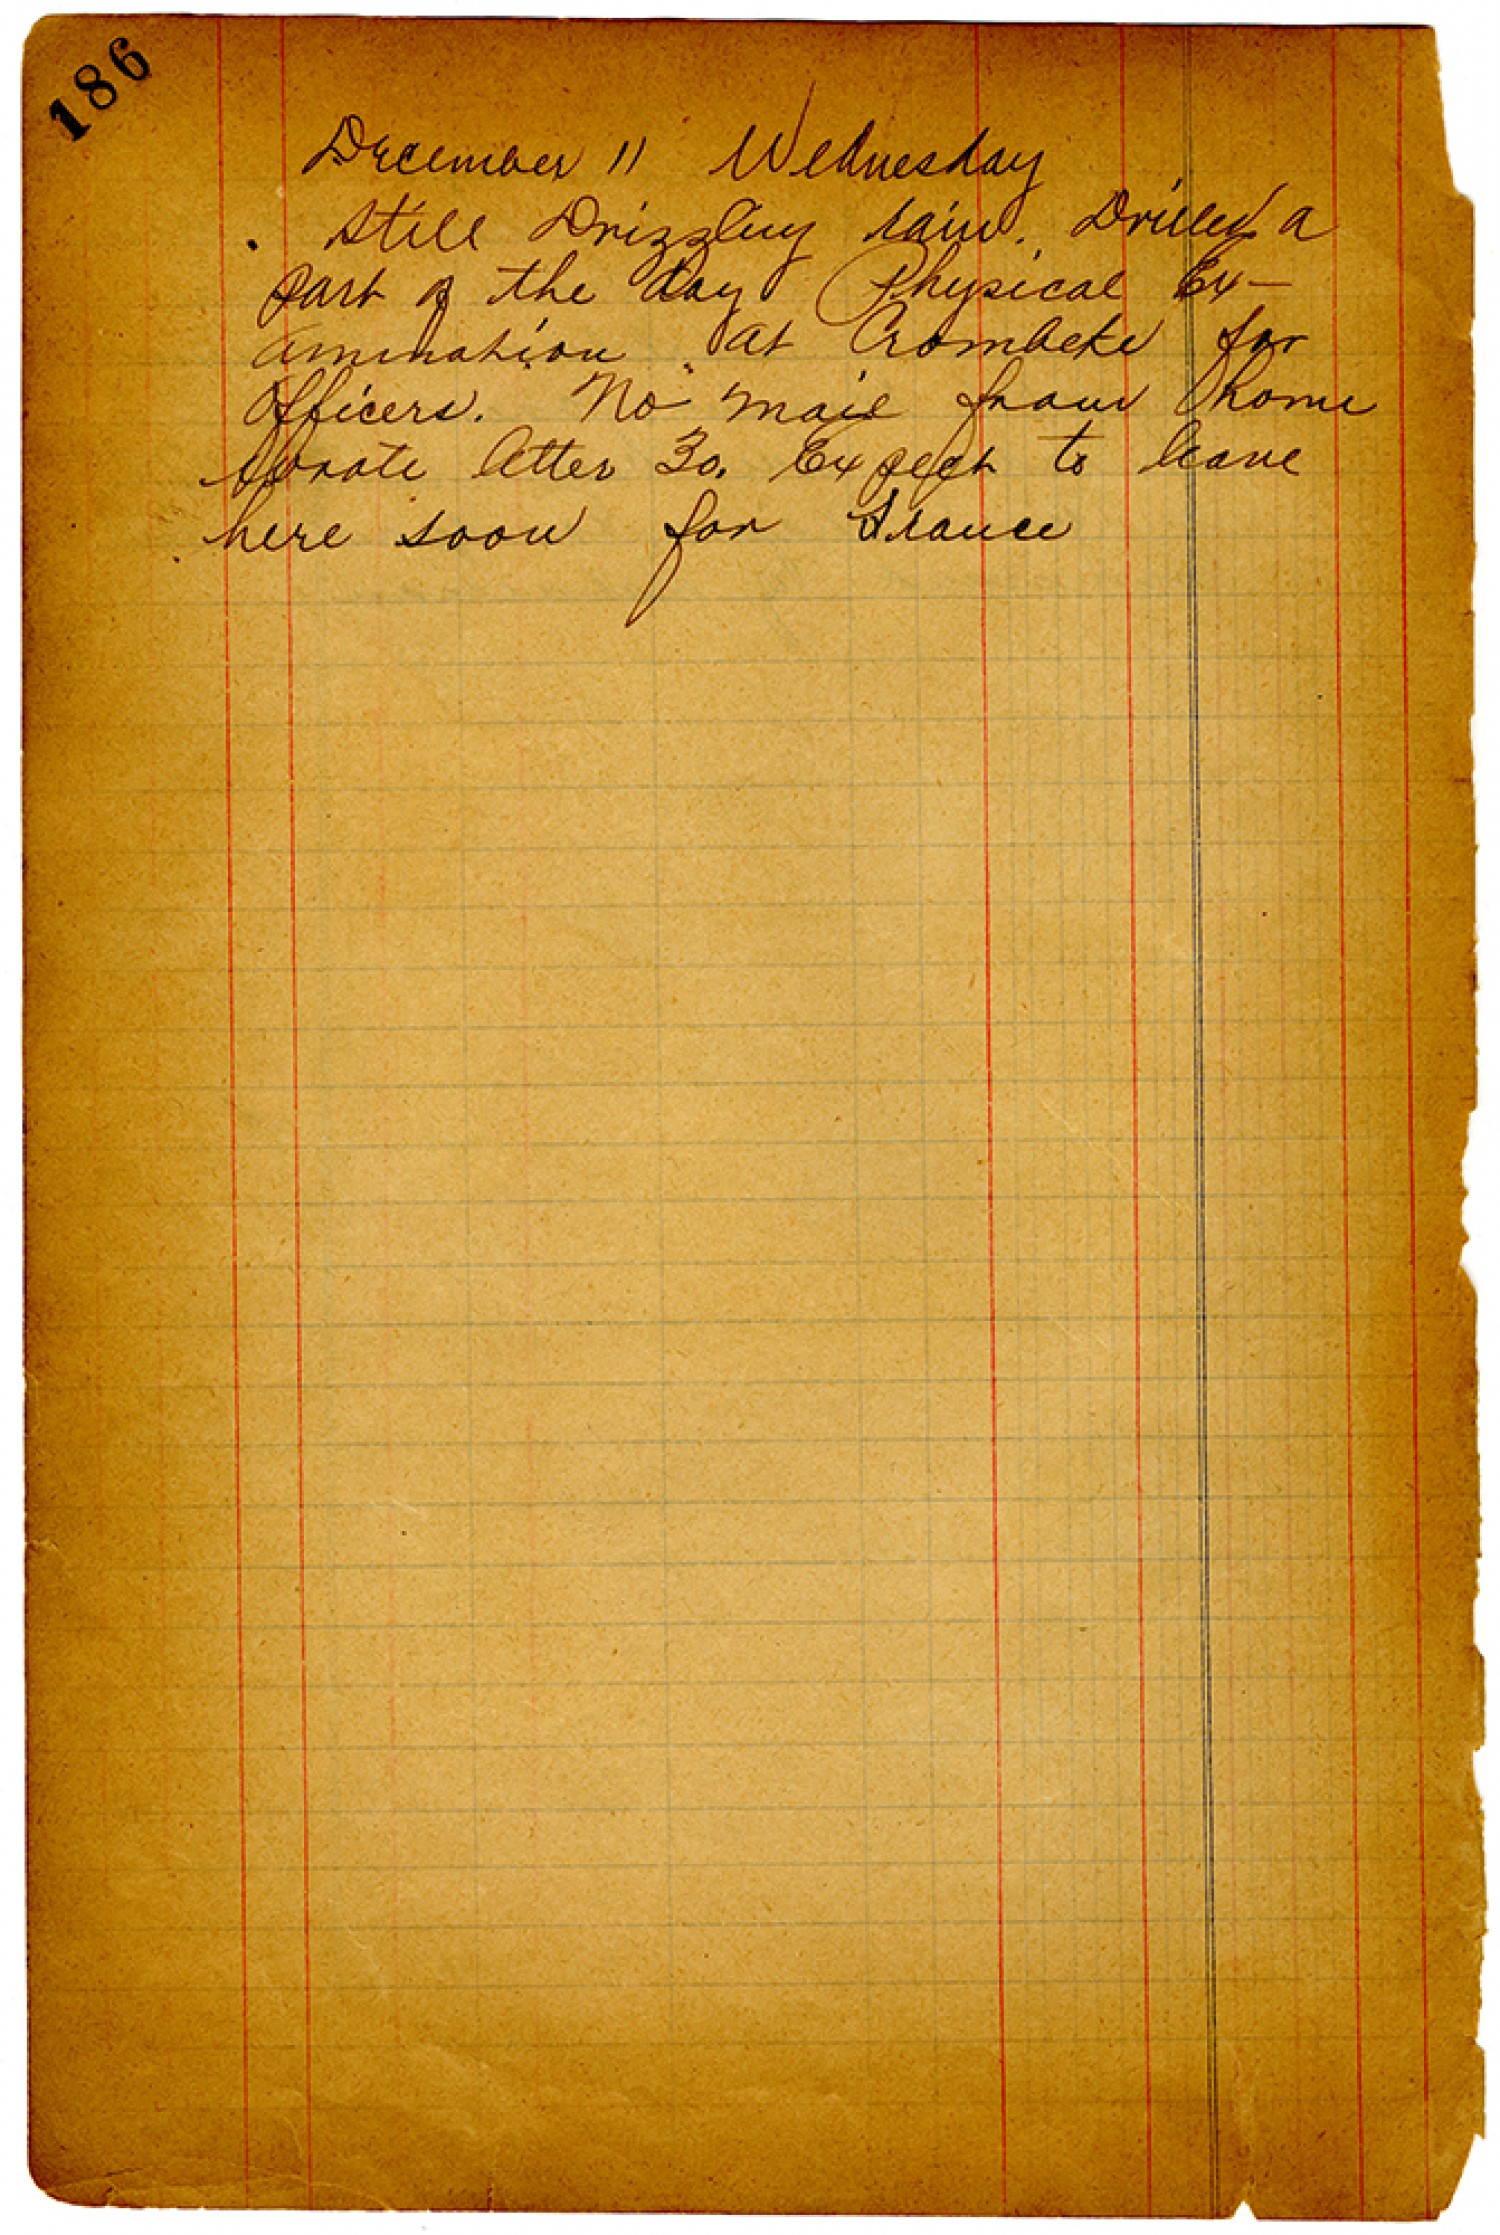 186
December 11 Wednesday
Still Drizzly rain. Drilled a
part of the day Physical Ex-
amination at Crombeke for
Officers. No mail from home
Wrote letter 30. Expect to leave
here soon for France